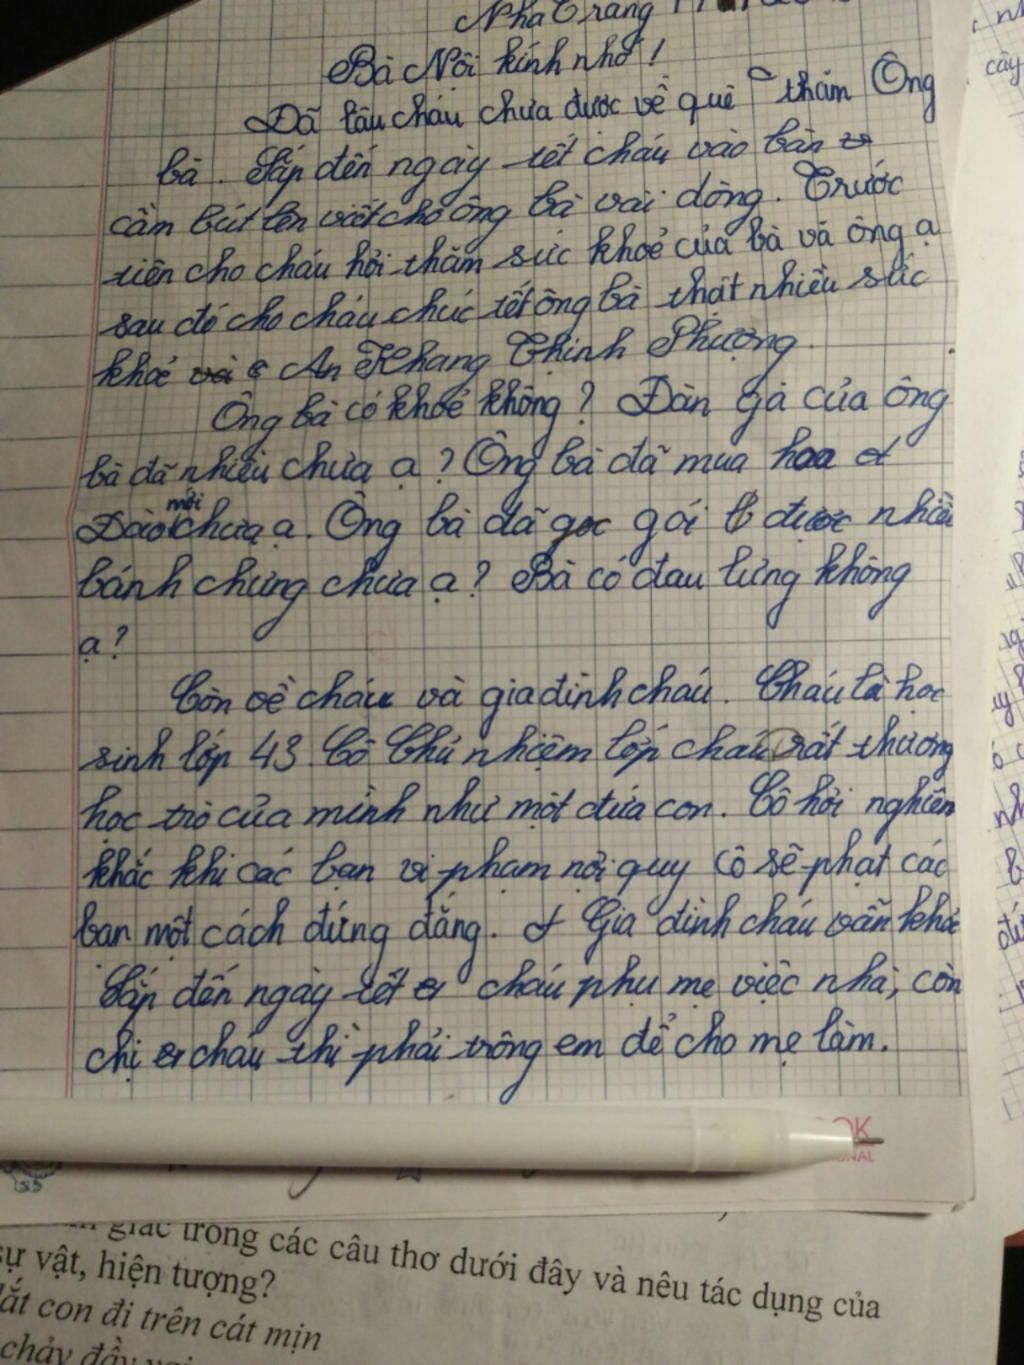 Nha Trang
Bà Nội kính nhớ!
Đã lâu cháu chưa được về quê thăm Ông
bà. Sắp đến ngày tết cháu vào bàn
cầm bút lên viết cho ông bà vài dòng. Trước
tiên cho cháu hỏi thăm sức khoẻ của bà và ông ạ
sau đó cho cháu chúc tết ông bà thật nhiều sức
khoẻ và An Khang Thịnh Phượng.
Ông bà có khoẻ không? Đàn gà của ông
bà đã nhiều chưa ạ? Ông bà đã mua hoa
Đào mới chưa ạ. Ông bà đã gọc gói được nhiều
bánh chưng chưa ạ? Bà có đau lưng không
ạ?
Còn về cháu và gia đình cháu. Cháu là học
sinh lớp 43. Cô Chủ nhiệm lớp cháu rất thương
học trò của mình như một đứa con. Cô hơi nghiên
khắc khi các bạn vi phạm nội quy cô sẽ phạt các
bạn một cách đứng đắng. Gia đình cháu vẫn khoẻ
Sắp đến ngày tết cháu phụ mẹ việc nhà, còn
chị cháu thì phải trông em để cho mẹ làm.
OK
NAL
55
giác trong các câu thơ dưới đây và nêu tác dụng của
sự vật, hiện tượng?
dắt con đi trên cát mịn
chảy đầy vai
cây